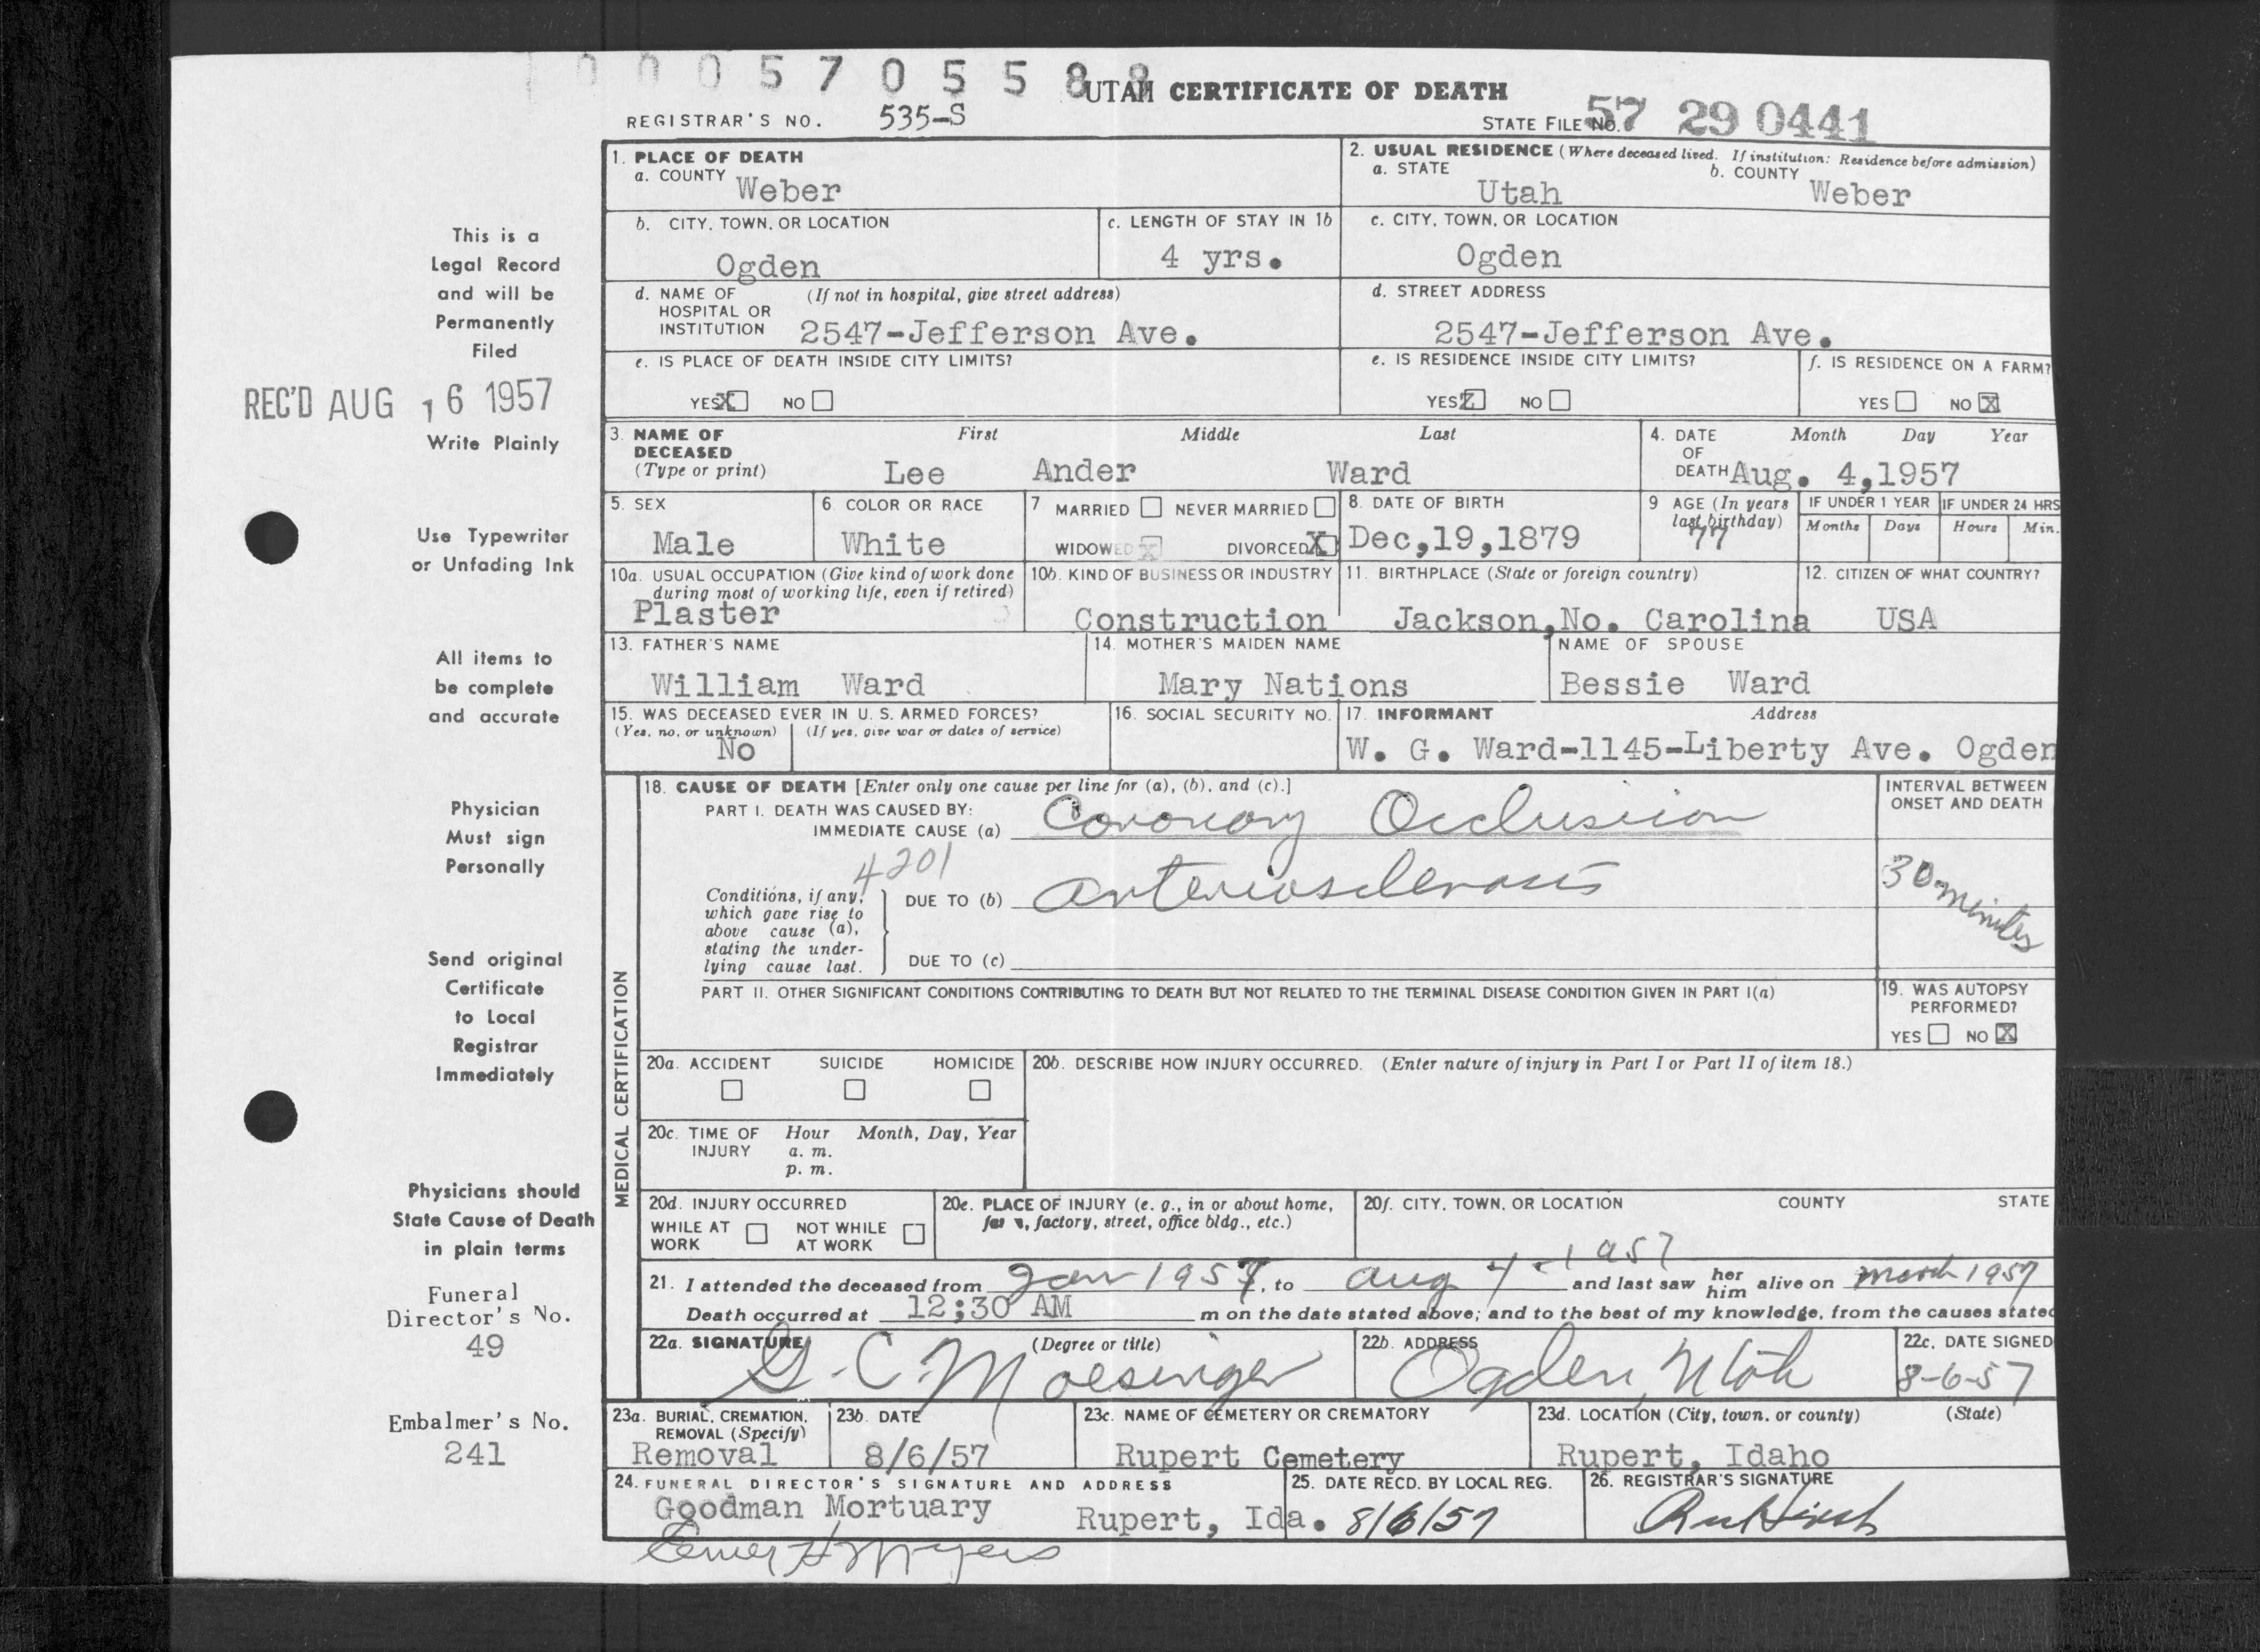 0 0 0 5 7 0 5 5 8 8
UTAH CERTIFICATE OF DEATH
REGISTRAR'S NO. 535-S
STATE FILE NO. 57 29 0441
This is a
Legal Record
and will be
Permanently
Filed
REC'D AUG 16 1957
Write Plainly
Use Typewriter
or Unfading Ink
All items to
be complete
and accurate
Physician
Must sign
Personally
Send original
Certificate
to Local
Registrar
Immediately
Physicians should
State Cause of Death
in plain terms
Funeral
Director's No.
49
Embalmer's No.
241
1. PLACE OF DEATH
a. COUNTY Weber
2. USUAL RESIDENCE (Where deceased lived. If institution: Residence before admission)
a. STATE Utah b. COUNTY Weber
b. CITY, TOWN, OR LOCATION
Ogden
c. LENGTH OF STAY IN 1b
4 yrs.
c. CITY, TOWN, OR LOCATION
Ogden
d. NAME OF (If not in hospital, give street address)
HOSPITAL OR
INSTITUTION 2547-Jefferson Ave.
d. STREET ADDRESS
2547-Jefferson Ave.
e. IS PLACE OF DEATH INSIDE CITY LIMITS?
YES X NO
e. IS RESIDENCE INSIDE CITY LIMITS?
YES NO
f. IS RESIDENCE ON A FARM?
YES NO X
3. NAME OF DECEASED (Type or print)
First Middle Last
Lee Ander Ward
4. DATE OF DEATH Month Day Year
Aug. 4,1957
5. SEX
Male
6 COLOR OR RACE
White
7 MARRIED NEVER MARRIED
WIDOWED X DIVORCED X
8. DATE OF BIRTH
Dec,19,1879
9 AGE (In years last birthday)
77
IF UNDER 1 YEAR
Months Days
IF UNDER 24 HRS
Hours Min.
10a. USUAL OCCUPATION (Give kind of work done
during most of working life, even if retired)
Plaster
10b. KIND OF BUSINESS OR INDUSTRY
Construction
11. BIRTHPLACE (State or foreign country)
Jackson,No. Carolina
12. CITIZEN OF WHAT COUNTRY?
USA
13. FATHER'S NAME
William Ward
14. MOTHER'S MAIDEN NAME
Mary Nations
NAME OF SPOUSE
Bessie Ward
15. WAS DECEASED EVER IN U. S. ARMED FORCES?
(Yes, no, or unknown) (If yes, give war or dates of service)
No
16. SOCIAL SECURITY NO.
17. INFORMANT Address
W. G. Ward-1145-Liberty Ave. Ogden
MEDICAL CERTIFICATION
18. CAUSE OF DEATH [Enter only one cause per line for (a), (b), and (c).]
PART I. DEATH WAS CAUSED BY:
IMMEDIATE CAUSE (a) Coronary Occlusion
4201
Conditions, if any,
which gave rise to
above cause (a),
stating the under-
lying cause last.
DUE TO (b) arteriosclerosis
DUE TO (c)
INTERVAL BETWEEN
ONSET AND DEATH
30 minutes
PART II. OTHER SIGNIFICANT CONDITIONS CONTRIBUTING TO DEATH BUT NOT RELATED TO THE TERMINAL DISEASE CONDITION GIVEN IN PART I(a)
19. WAS AUTOPSY
PERFORMED?
YES NO X
20a. ACCIDENT SUICIDE HOMICIDE
20b. DESCRIBE HOW INJURY OCCURRED. (Enter nature of injury in Part I or Part II of item 18.)
20c. TIME OF INJURY Hour Month, Day, Year
a. m.
p. m.
20d. INJURY OCCURRED
WHILE AT WORK NOT WHILE AT WORK
20e. PLACE OF INJURY (e. g., in or about home,
farm, factory, street, office bldg., etc.)
20f. CITY, TOWN, OR LOCATION COUNTY STATE
21. I attended the deceased from Jan 1957, to Aug 4 - 1957 and last saw her him alive on march 1957
Death occurred at 12;30 AM m on the date stated above; and to the best of my knowledge, from the causes stated
22a. SIGNATURE (Degree or title)
G. C. Moesinger
22b. ADDRESS
Ogden, Utah
22c. DATE SIGNED
8-6-57
23a. BURIAL, CREMATION,
REMOVAL (Specify)
Removal
23b. DATE
8/6/57
23c. NAME OF CEMETERY OR CREMATORY
Rupert Cemetery
23d. LOCATION (City, town, or county) (State)
Rupert, Idaho
24. FUNERAL DIRECTOR'S SIGNATURE AND ADDRESS
Goodman Mortuary Rupert, Ida.
25. DATE RECD. BY LOCAL REG.
8/6/57
26. REGISTRAR'S SIGNATURE
Myers